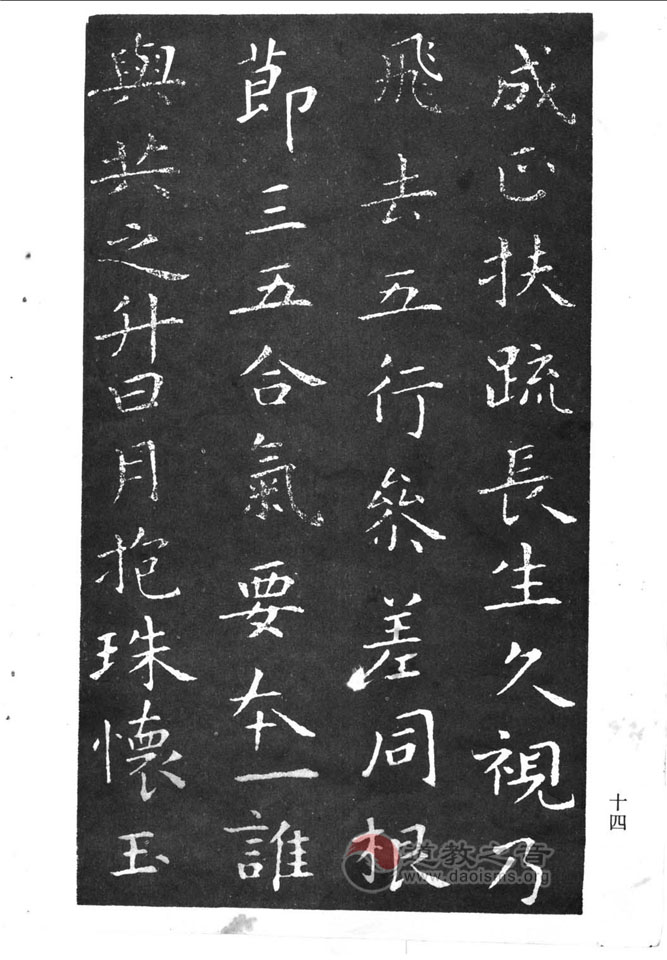 成正扶疏長生久視乃
飛去五行參差同根
節三五合氣要本一誰
與共之升日月抱珠懷玉
十四
道教之音
www.daoisms.org